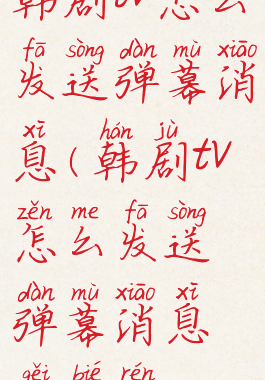 韩剧tv怎么
fā sòng dàn mù xiāo
发送弹幕消
xī hán jù
息(韩剧tv
zěn me fā sòng
怎么发送
dàn mù xiāo xī
弹幕消息
gěi bié rén